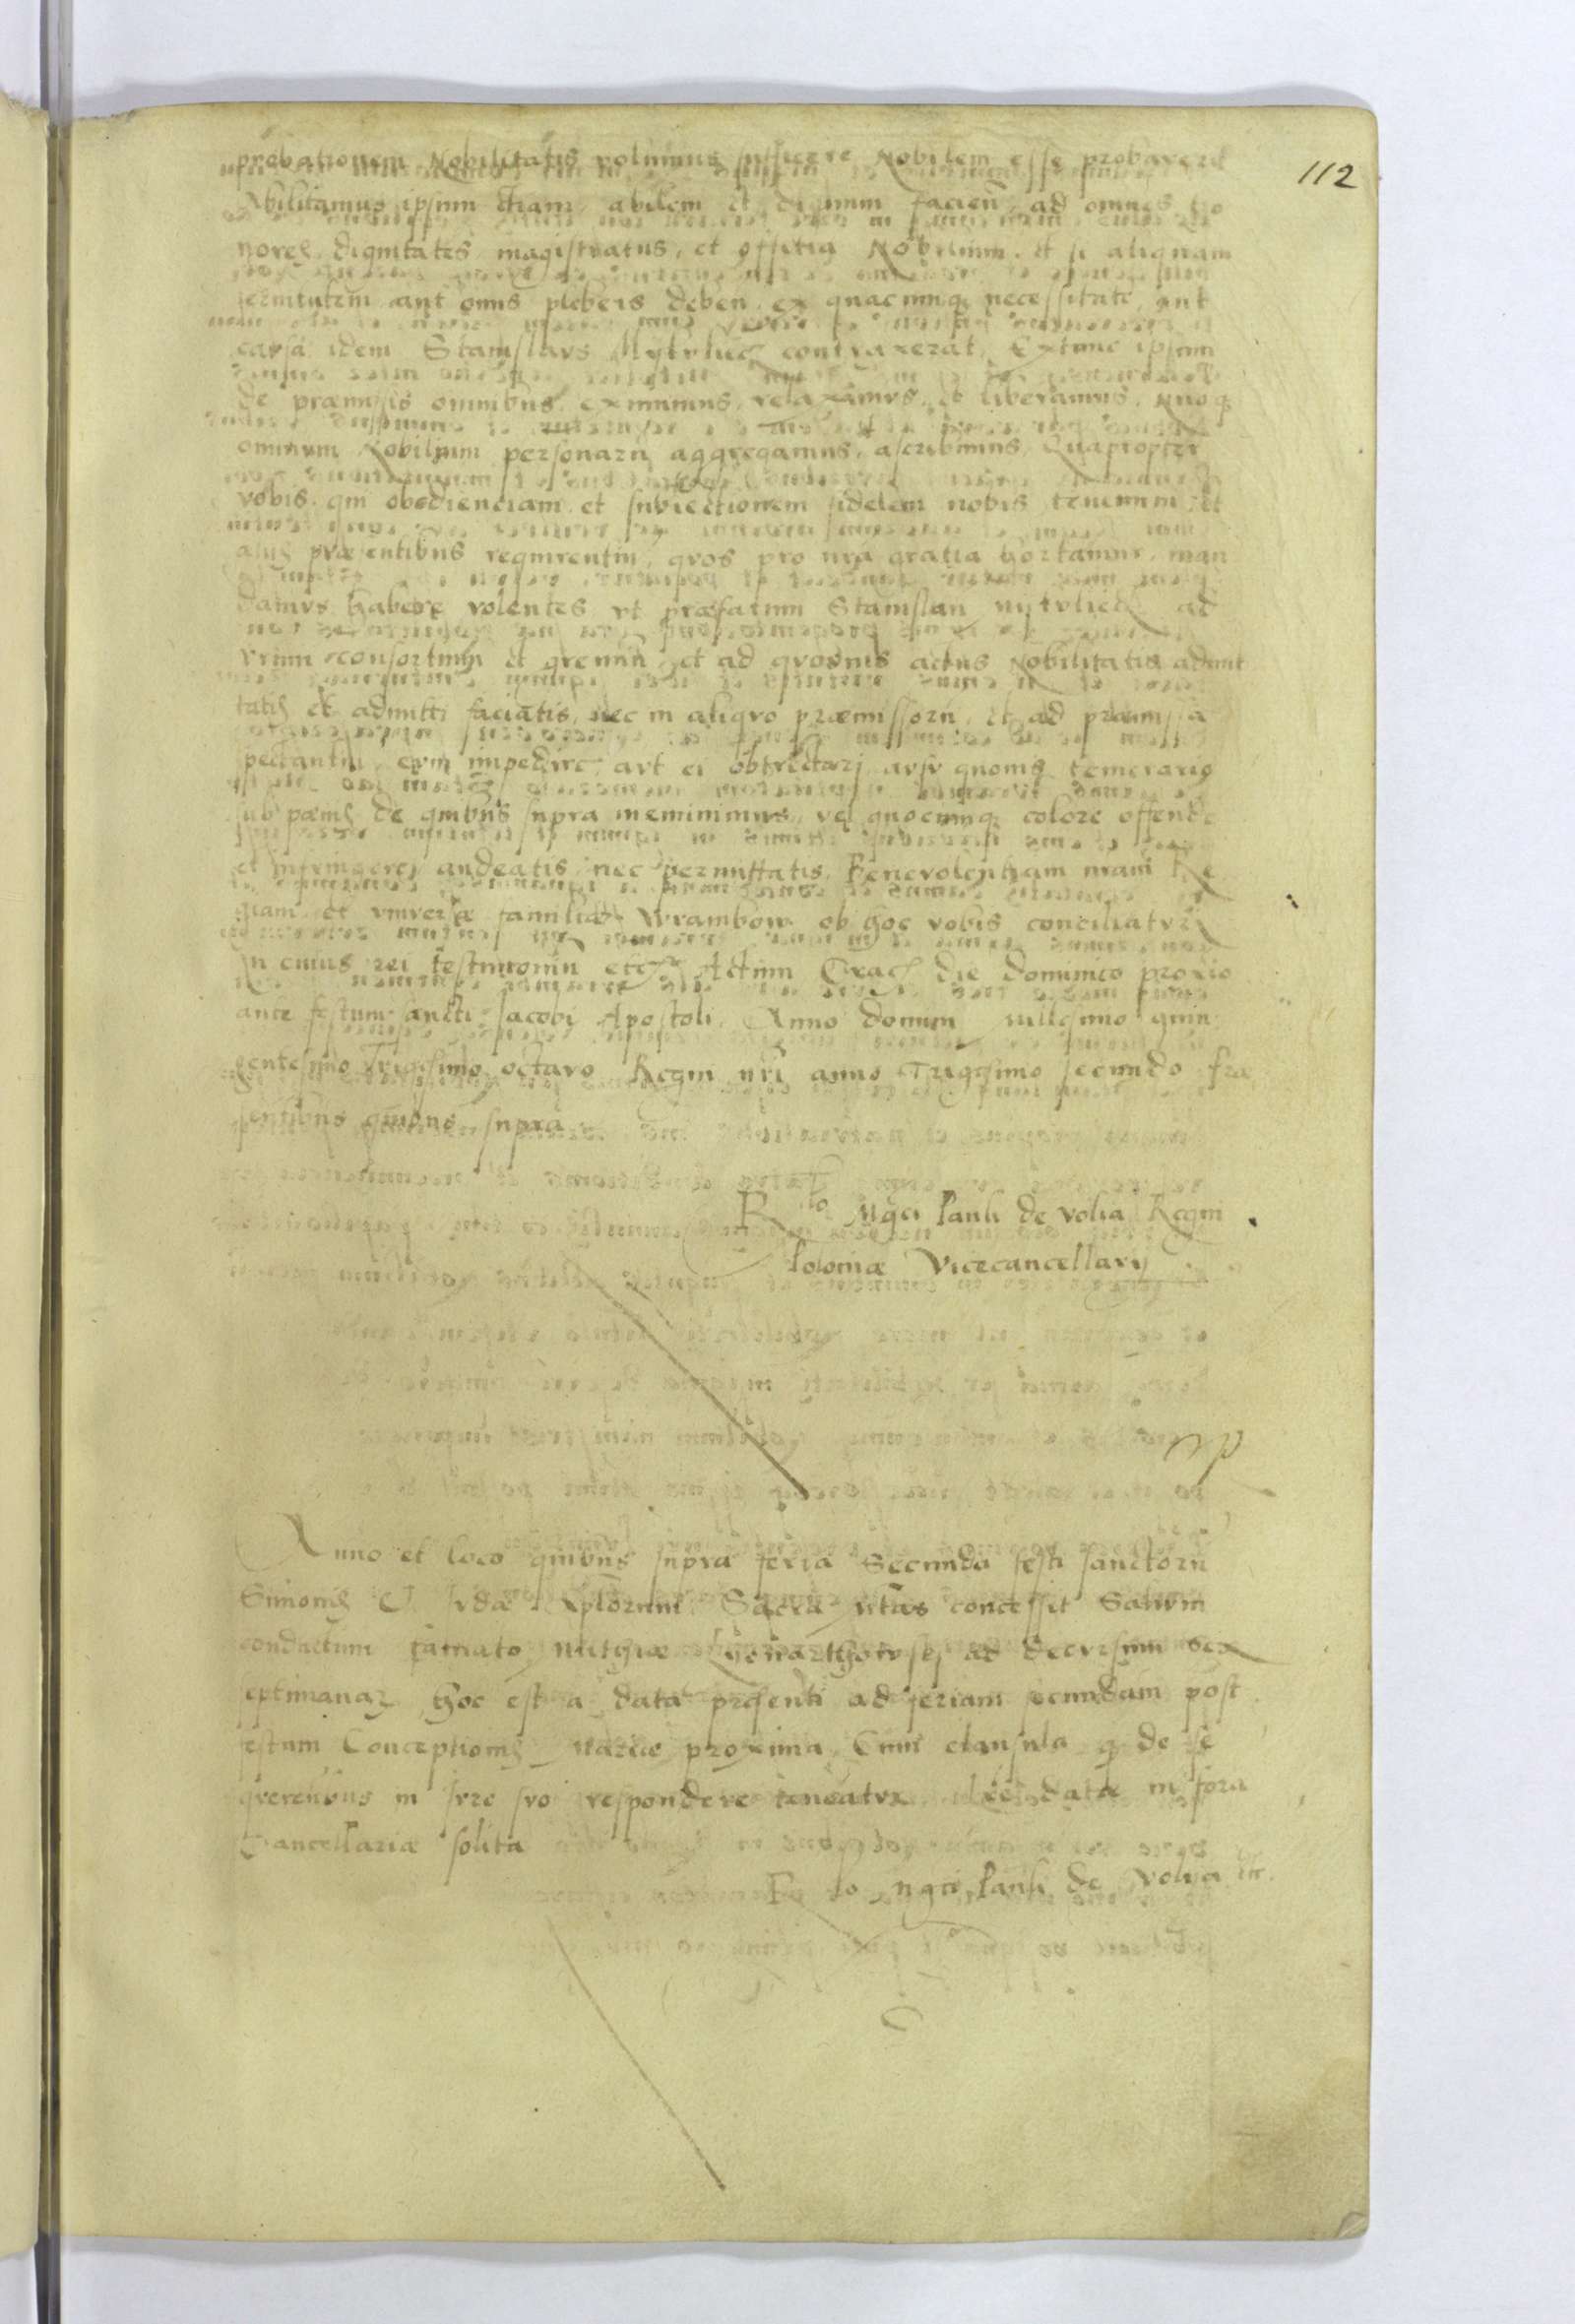 112
probationem Nobilitatis volumus sufficere Nobilem esse probaverit
Abilitamus ipsum etiam, abilem et dignum facien̄, ad omnes ho
nores, dignitates magistratus, et offitia Nobilium. et si aliquam
servitutem aut onus plebeis deben̄ ex quacunq necessitate, aut
causa idem Stanislaus contraxerat, Extunc ipsum
de præmissis omnibus, eximimus, relaxamus, et liberamus,
omnium Nobilium personarū aggregamus, ascribimus, Quapropter
vobis qui obedienciam et subiectionem fidelem nobis tenemini et
alijs præsentibus requirentin, quos pro nra gratia hortamur, man
damus habere volentes ut præfatum Stanislau ad
vrum consortium et gremiū, et ad quosvis actus Nobilitatis admit
tatis et admitti faciatis, nec in aliquo præmissorū, et ad præmissa
spectantiū, eum impedire, aut ei obtrectari ausu quovis temerario
sub pœnis de quibus supra meminimus, vel quocunq colore offende
et infringere, audeatis nec permittatis, Benevolentiam nram Re
giam et universæ familiæ Wrambow ob hoc vobis conciliaturi
In cuius rei testimoniū etc Actum Crac die dominico proxio
ante festum sancti Jacobi Apostoli, Anno domini millesimo quin
gentesimo Trigesimo octavo Regni nri anno Trigesimo secundo Præ
sentibus quibus supra
R^lo Mgci Pauli de Volia Regni
Poloniæ Vicecancellarij
Anno et loco quibus supra feria Secunda festi sanctorū
Simonis & Judæ Aplorum Sacra Mtas concessit Salvum
conductum famato ad decursum sex
septimanar hoc est a data presenti ad feriam secundam post
festum Conceptionis Mariæ proxima, Cum clausula q de se
querentibus in Jure suo respondere teneatur, data in forā
Cancellariæ solita
R lo Mgci Pauli de Volia etc.